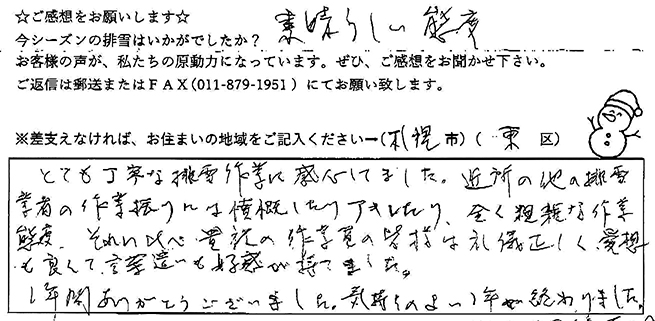 ☆ご感想をお願いします☆
素晴らしい態度
今シーズンの排雪はいかがでしたか？
お客様の声が、私たちの原動力になっています。ぜひ、ご感想をお聞かせ下さい。
ご返信は郵送またはＦＡＸ(011-879-1951)にてお願い致します。
※差支えなければ、お住まいの地域をご記入ください→(札幌市)(東区)
とても丁寧な排雪作業に感心してました。近所の他の排雪
業者の作業振りには憤慨したりアキレたり、全く粗雑な作業
態度、それに比べ貴社の作業員の皆様は礼儀正しく愛想
も良くて言葉遣いも好感が持てました。
1年間ありがとうございました。気持ちのよい1年が終わりました。